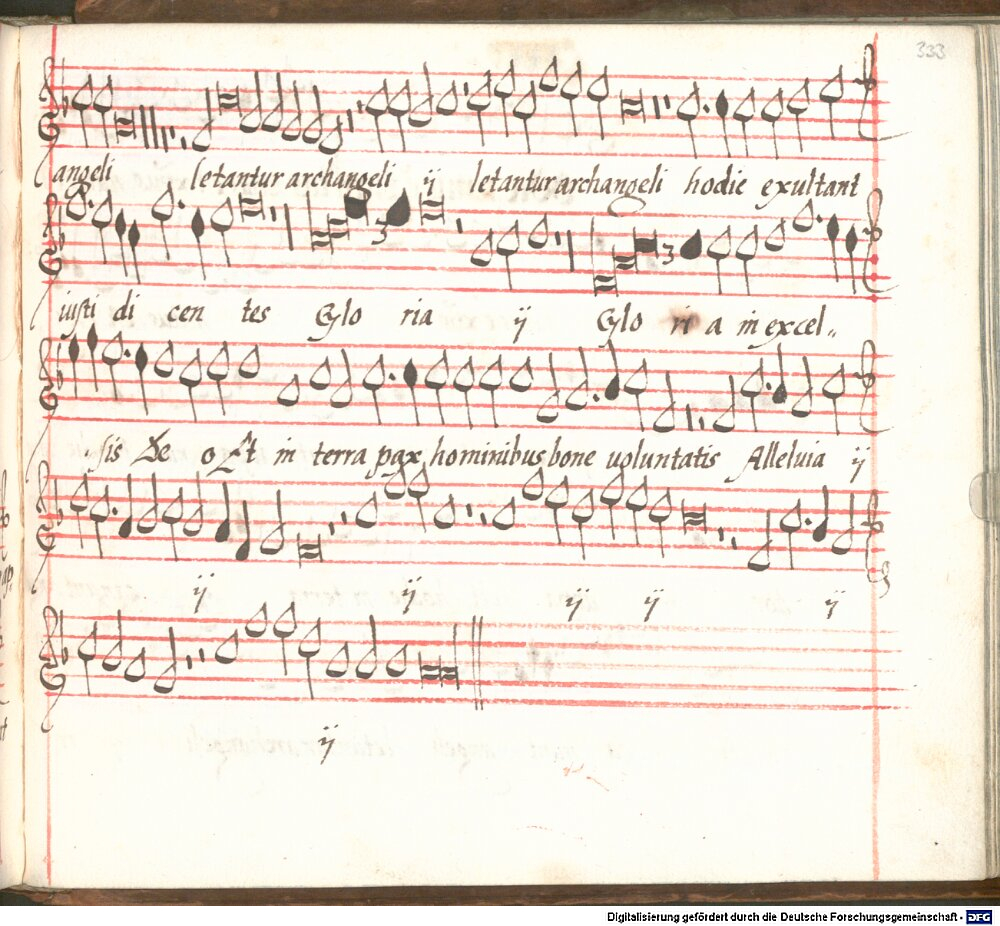 333
angeli letantur archangeli ij letantur archangeli hodie exultant
3 3
iusti di cen tes Glo ria ij Glo ri a in excel„
sis De o Et in terra pax hominibus bone voluntatis Alleluia ij
ij ij ij ij ij
ij
Digitalisierung gefördert durch die Deutsche Forschungsgemeinschaft - DFG